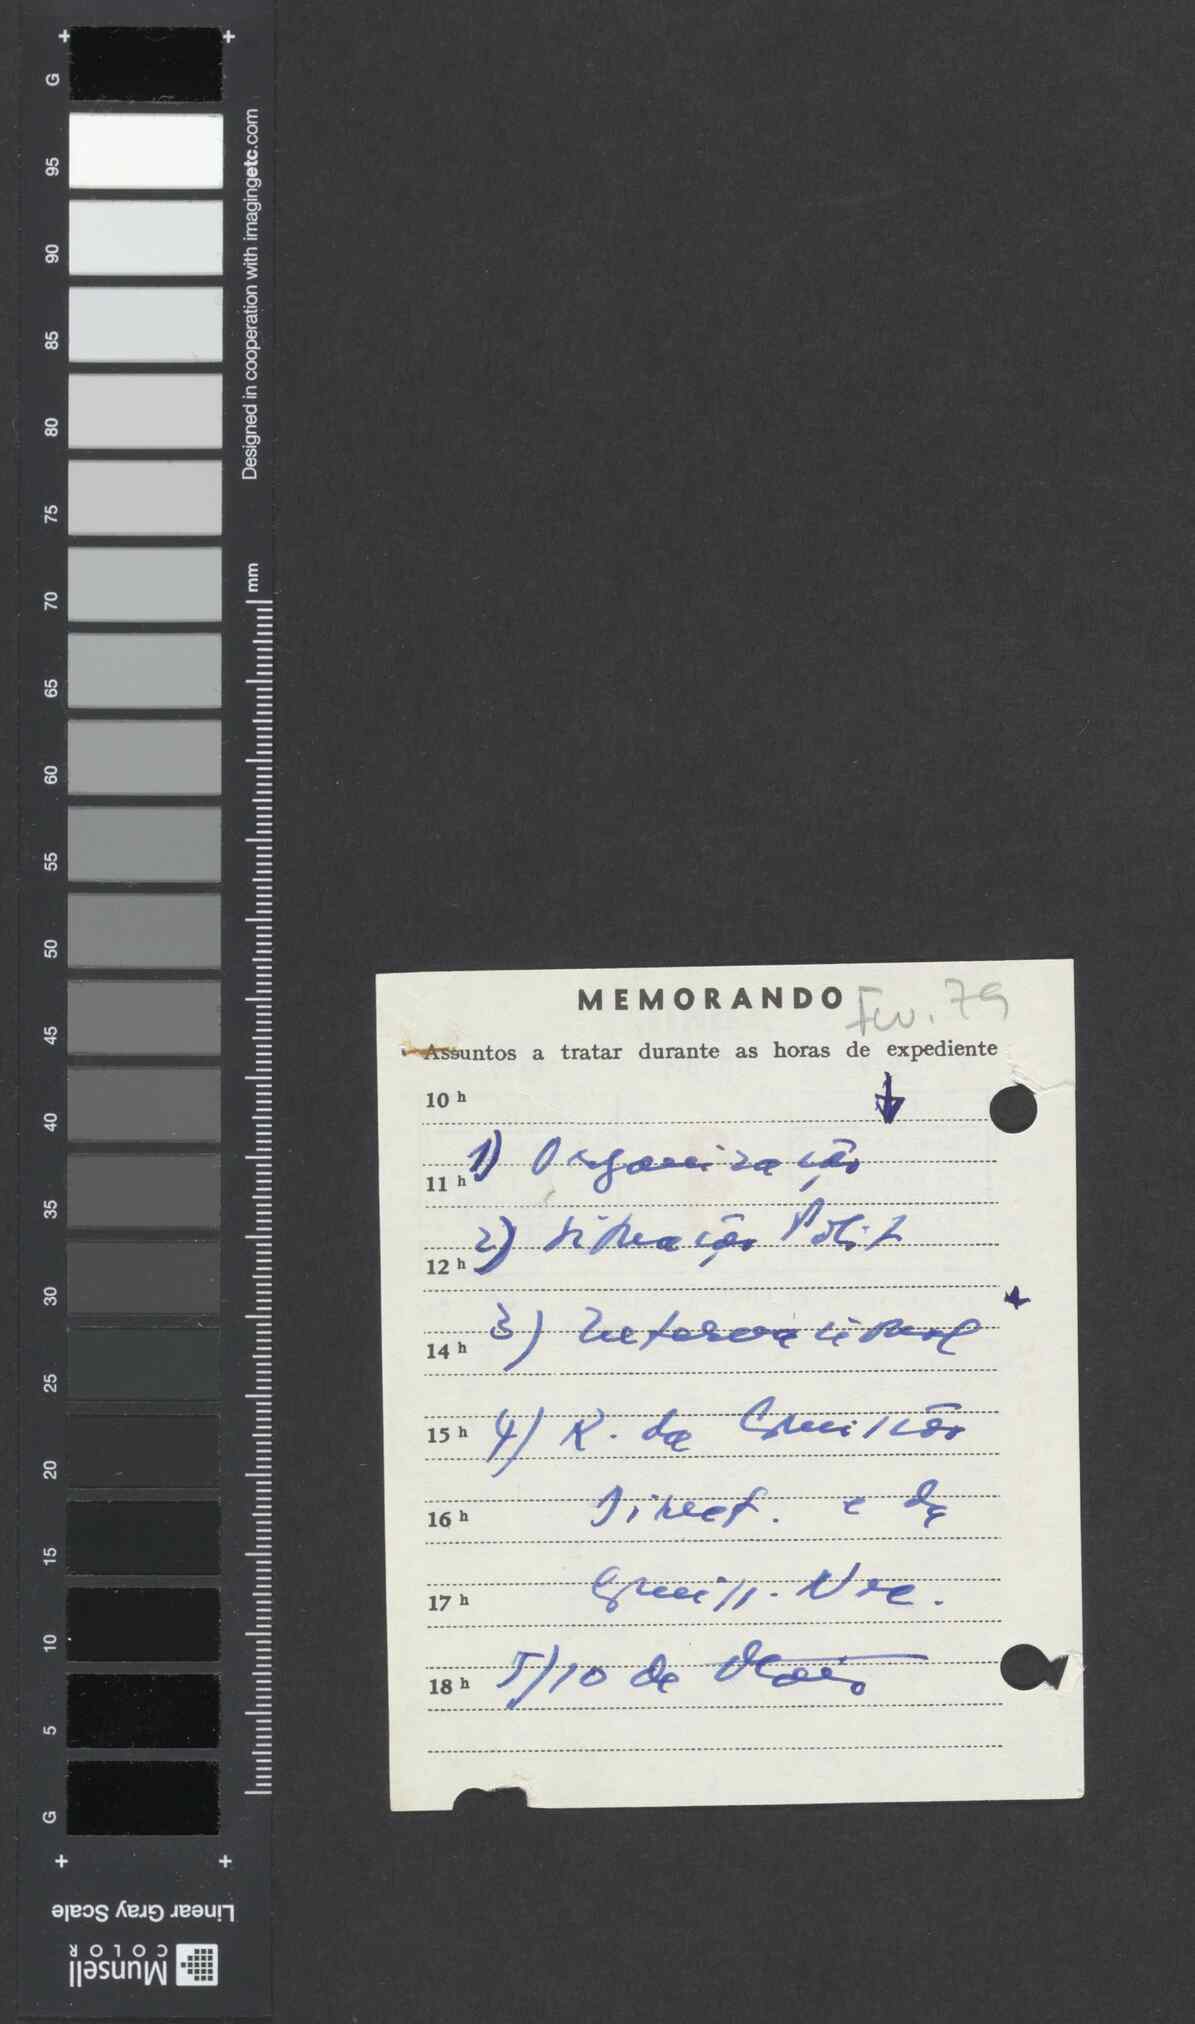 G
95
90
85
80
75
70
65
60
55
50
45
40
35
30
25
20
15
10
5
G
Designed in cooperation with imagingetc.com
mm
Linear Gray Scale
Munsell
COLOR
MEMORANDO
Fev. 79
Assuntos a tratar durante as horas de expediente
10 h
1) Organização
11 h
2) Situação Polit
12 h
3) Internacional
14 h
15 h 4) R. da Comissão
16 h Direct. e da
17 h Comiss. Nac.
18 h 5) 10 de Maio